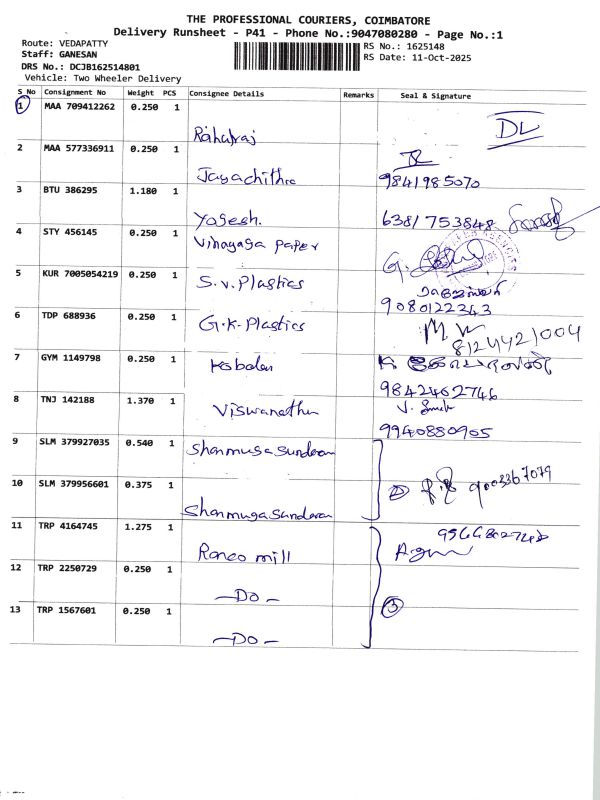 THE PROFESSIONAL COURIERS, COIMBATORE
Delivery Runsheet - P41 - Phone No.:9047080280 - Page No.:1
Route: VEDAPATTY
RS No.: 1625148
Staff: GANESAN
RS Date: 11-Oct-2025
DRS No.: DCJB162514801
Vehicle: Two Wheeler Delivery
S No Consignment No Weight PCS Consignee Details Remarks Seal & Signature
1 MAA 709412262 0.250 1
DL
Rahulraj
2 MAA 577336911 0.250 1
Jayachithra 9841985070
3 BTU 386295 1.180 1
Yogesh. 6381753848
4 STY 456145 0.250 1
Vinayaga Paper
5 KUR 7005054219 0.250 1
S.V. Plastics
9080122343
6 TDP 688936 0.250 1
G.K. Plastics
8124421004
7 GYM 1149798 0.250 1
Kobalan
9842462746
8 TNJ 142188 1.370 1
Viswanathan
9940880905
9 SLM 379927035 0.540 1
Shanmuga sundaram
10 SLM 379956601 0.375 1
9003367079
Shanmuga sundaram
11 TRP 4164745 1.275 1
Ranco mill
12 TRP 2250729 0.250 1
-DO-
13 TRP 1567601 0.250 1
3
-DO-